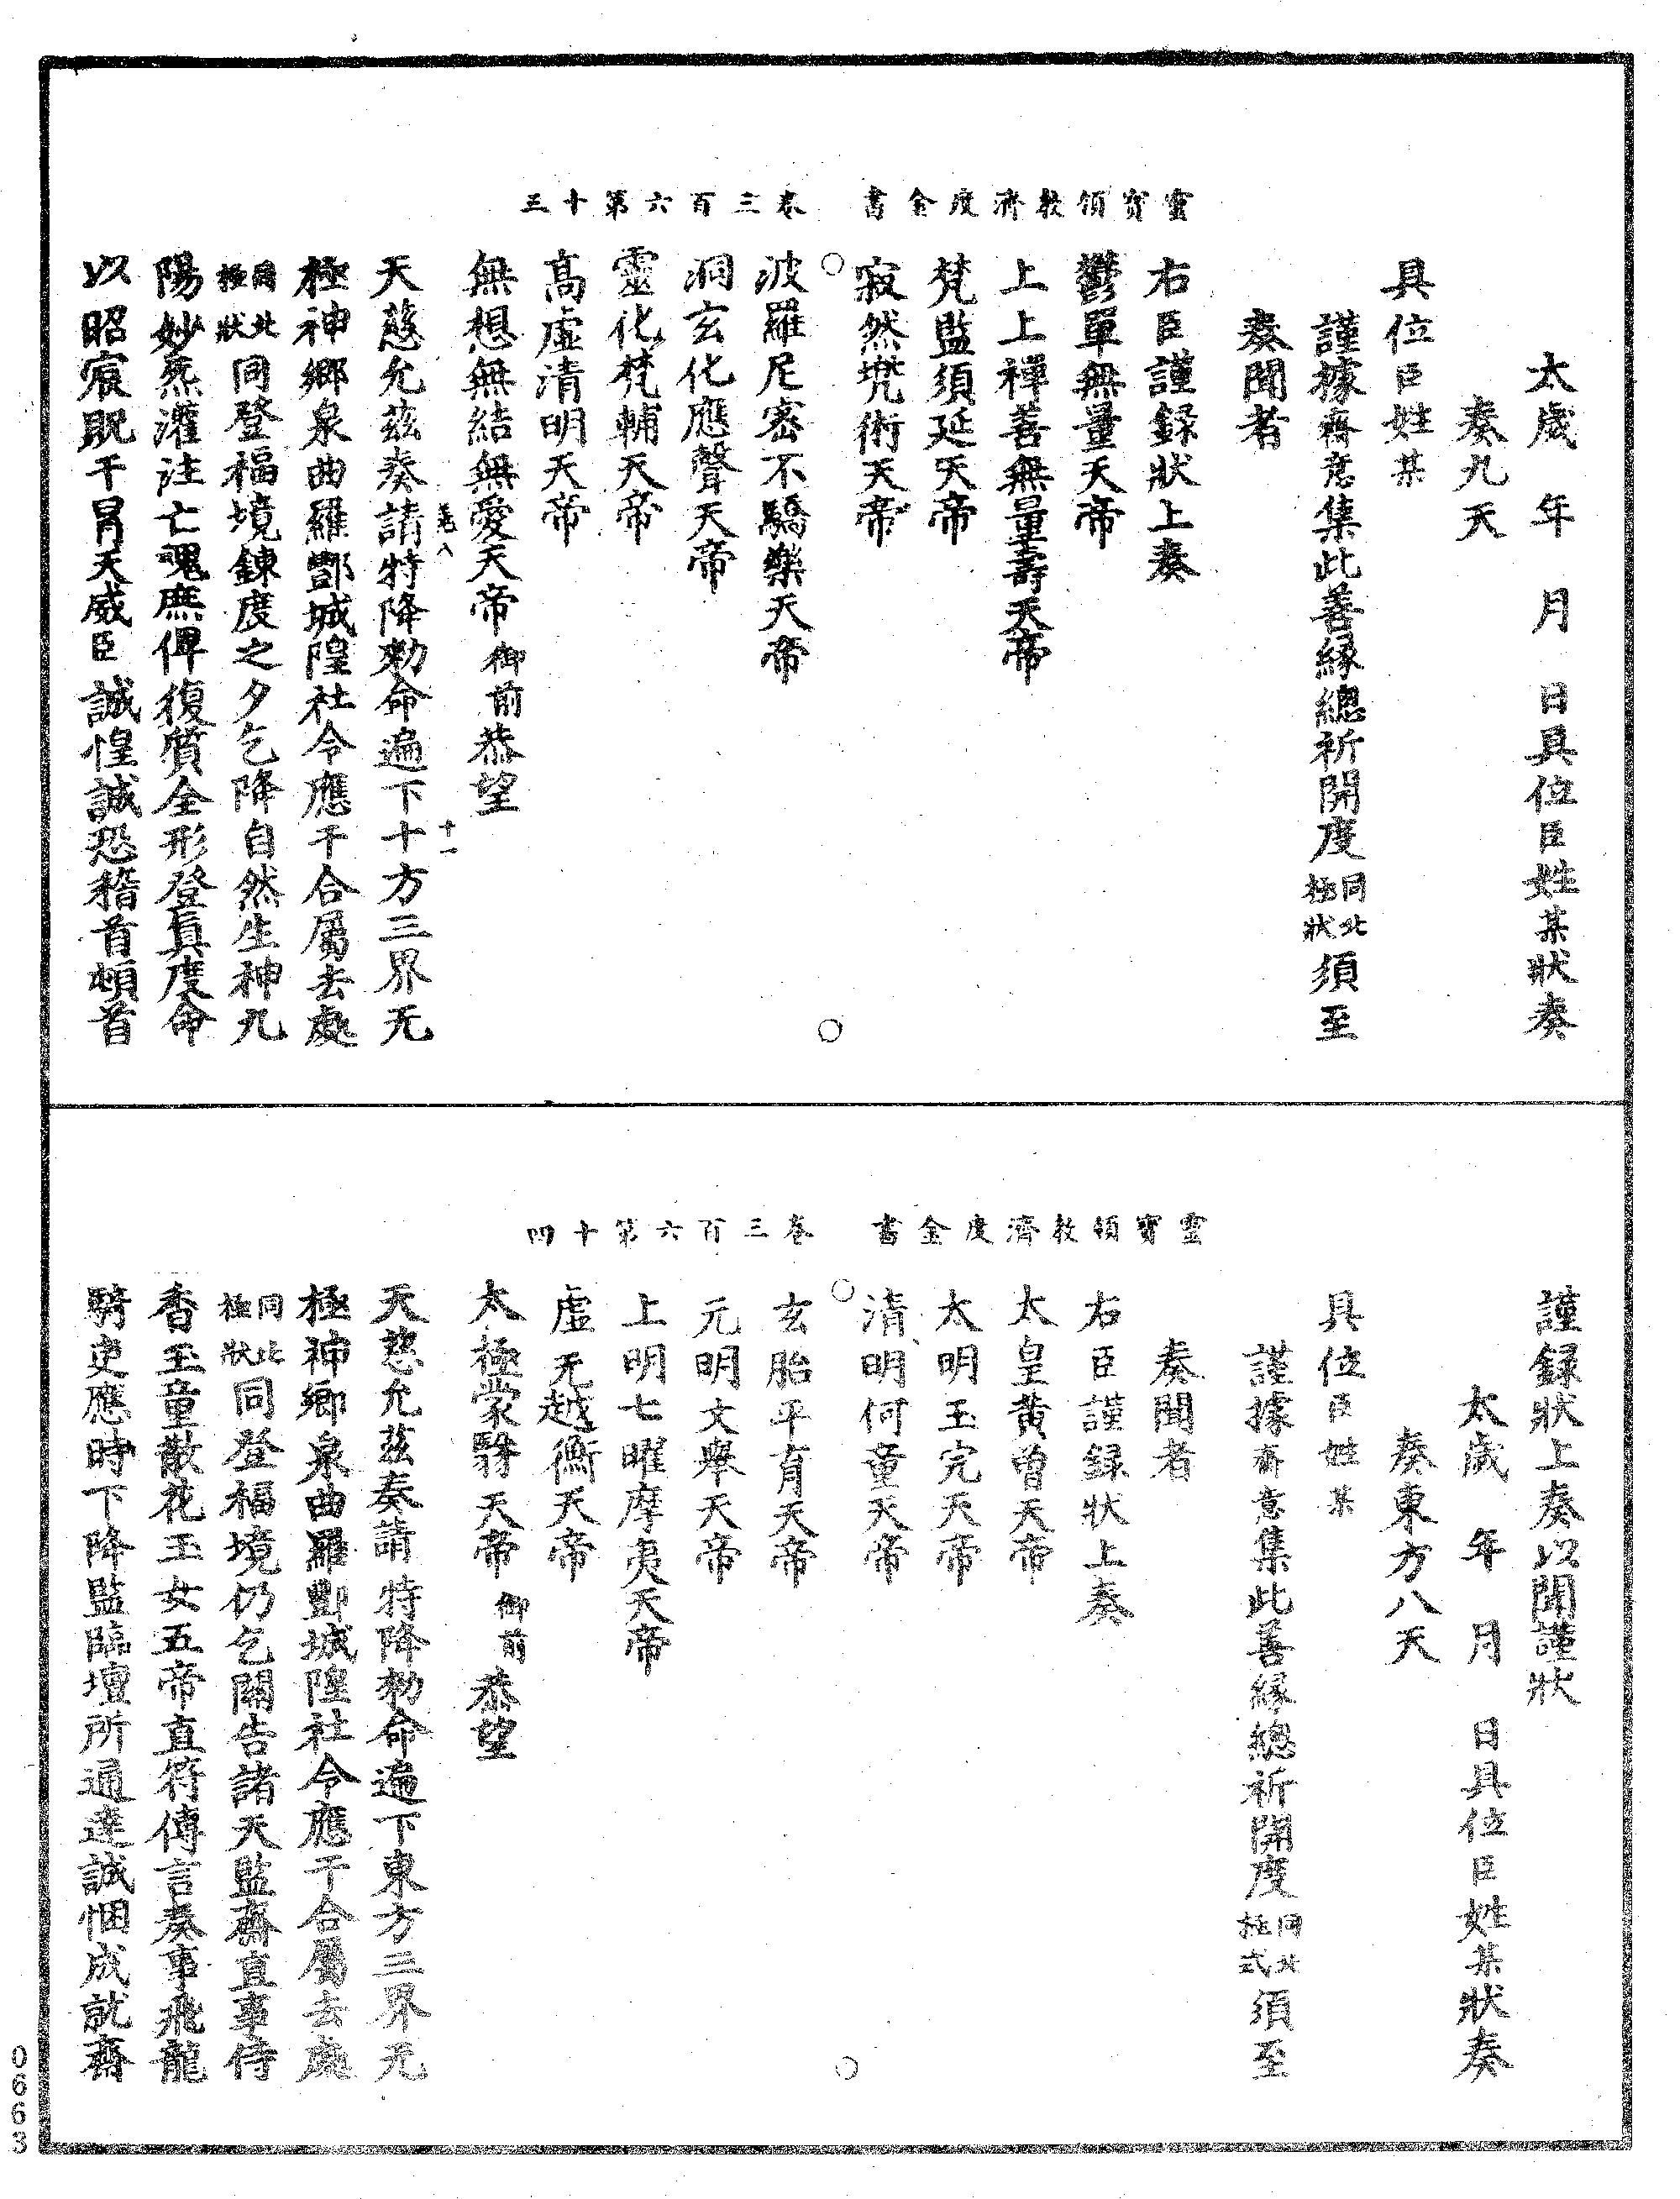 靈寶領教濟度金書　卷三百六第十三
太歲　年　月　日具位臣姓某狀奏
奏九天
具位臣姓某
謹據齋意集此善緣總祈開度同北極狀須至
奏聞者
右臣謹錄狀上奏
鬱單無量天帝
上上禪善無量壽天帝
梵監須延天帝
寂然㙮術天帝
波羅尼密不驕樂天帝
洞玄化應聲天帝
靈化梵輔天帝
高虛清明天帝
無想無結無愛天帝御前恭望
天慈允茲奏請特降勑命遍下十方三界无
極神鄉泉曲羅酆城隍社令應干合屬去處
同北極狀同登福境鍊度之夕乞降自然生神九
陽妙炁灌注亡魂庶俾復質全形登真度命
以昭宸貺干冒天威臣誠惶誠恐稽首頓首
十一
靈寶領教濟度金書　卷三百六第十四
謹錄狀上奏以聞謹狀
太歲　年　月　日具位臣姓某狀奏
奏東方八天
具位臣姓某
謹據齋意集此善緣總祈開度同北極式須至
奏聞者
右臣謹錄狀上奏
太皇黃曾天帝
太明玉完天帝
清明何童天帝
玄胎平育天帝
元明文舉天帝
上明七曜摩夷天帝
虛无越衡天帝
太極蒙翳天帝御前恭望
天慈允茲奏請特降勑命遍下東方三界无
極神鄉泉曲羅酆城隍社令應干合屬去處
同北極狀同登福境仍乞關告諸天監齋直事侍
香玉童散花玉女五帝直符傳言奏事飛龍
騎吏應時下降監臨壇所通達誠悃成就齋
0663